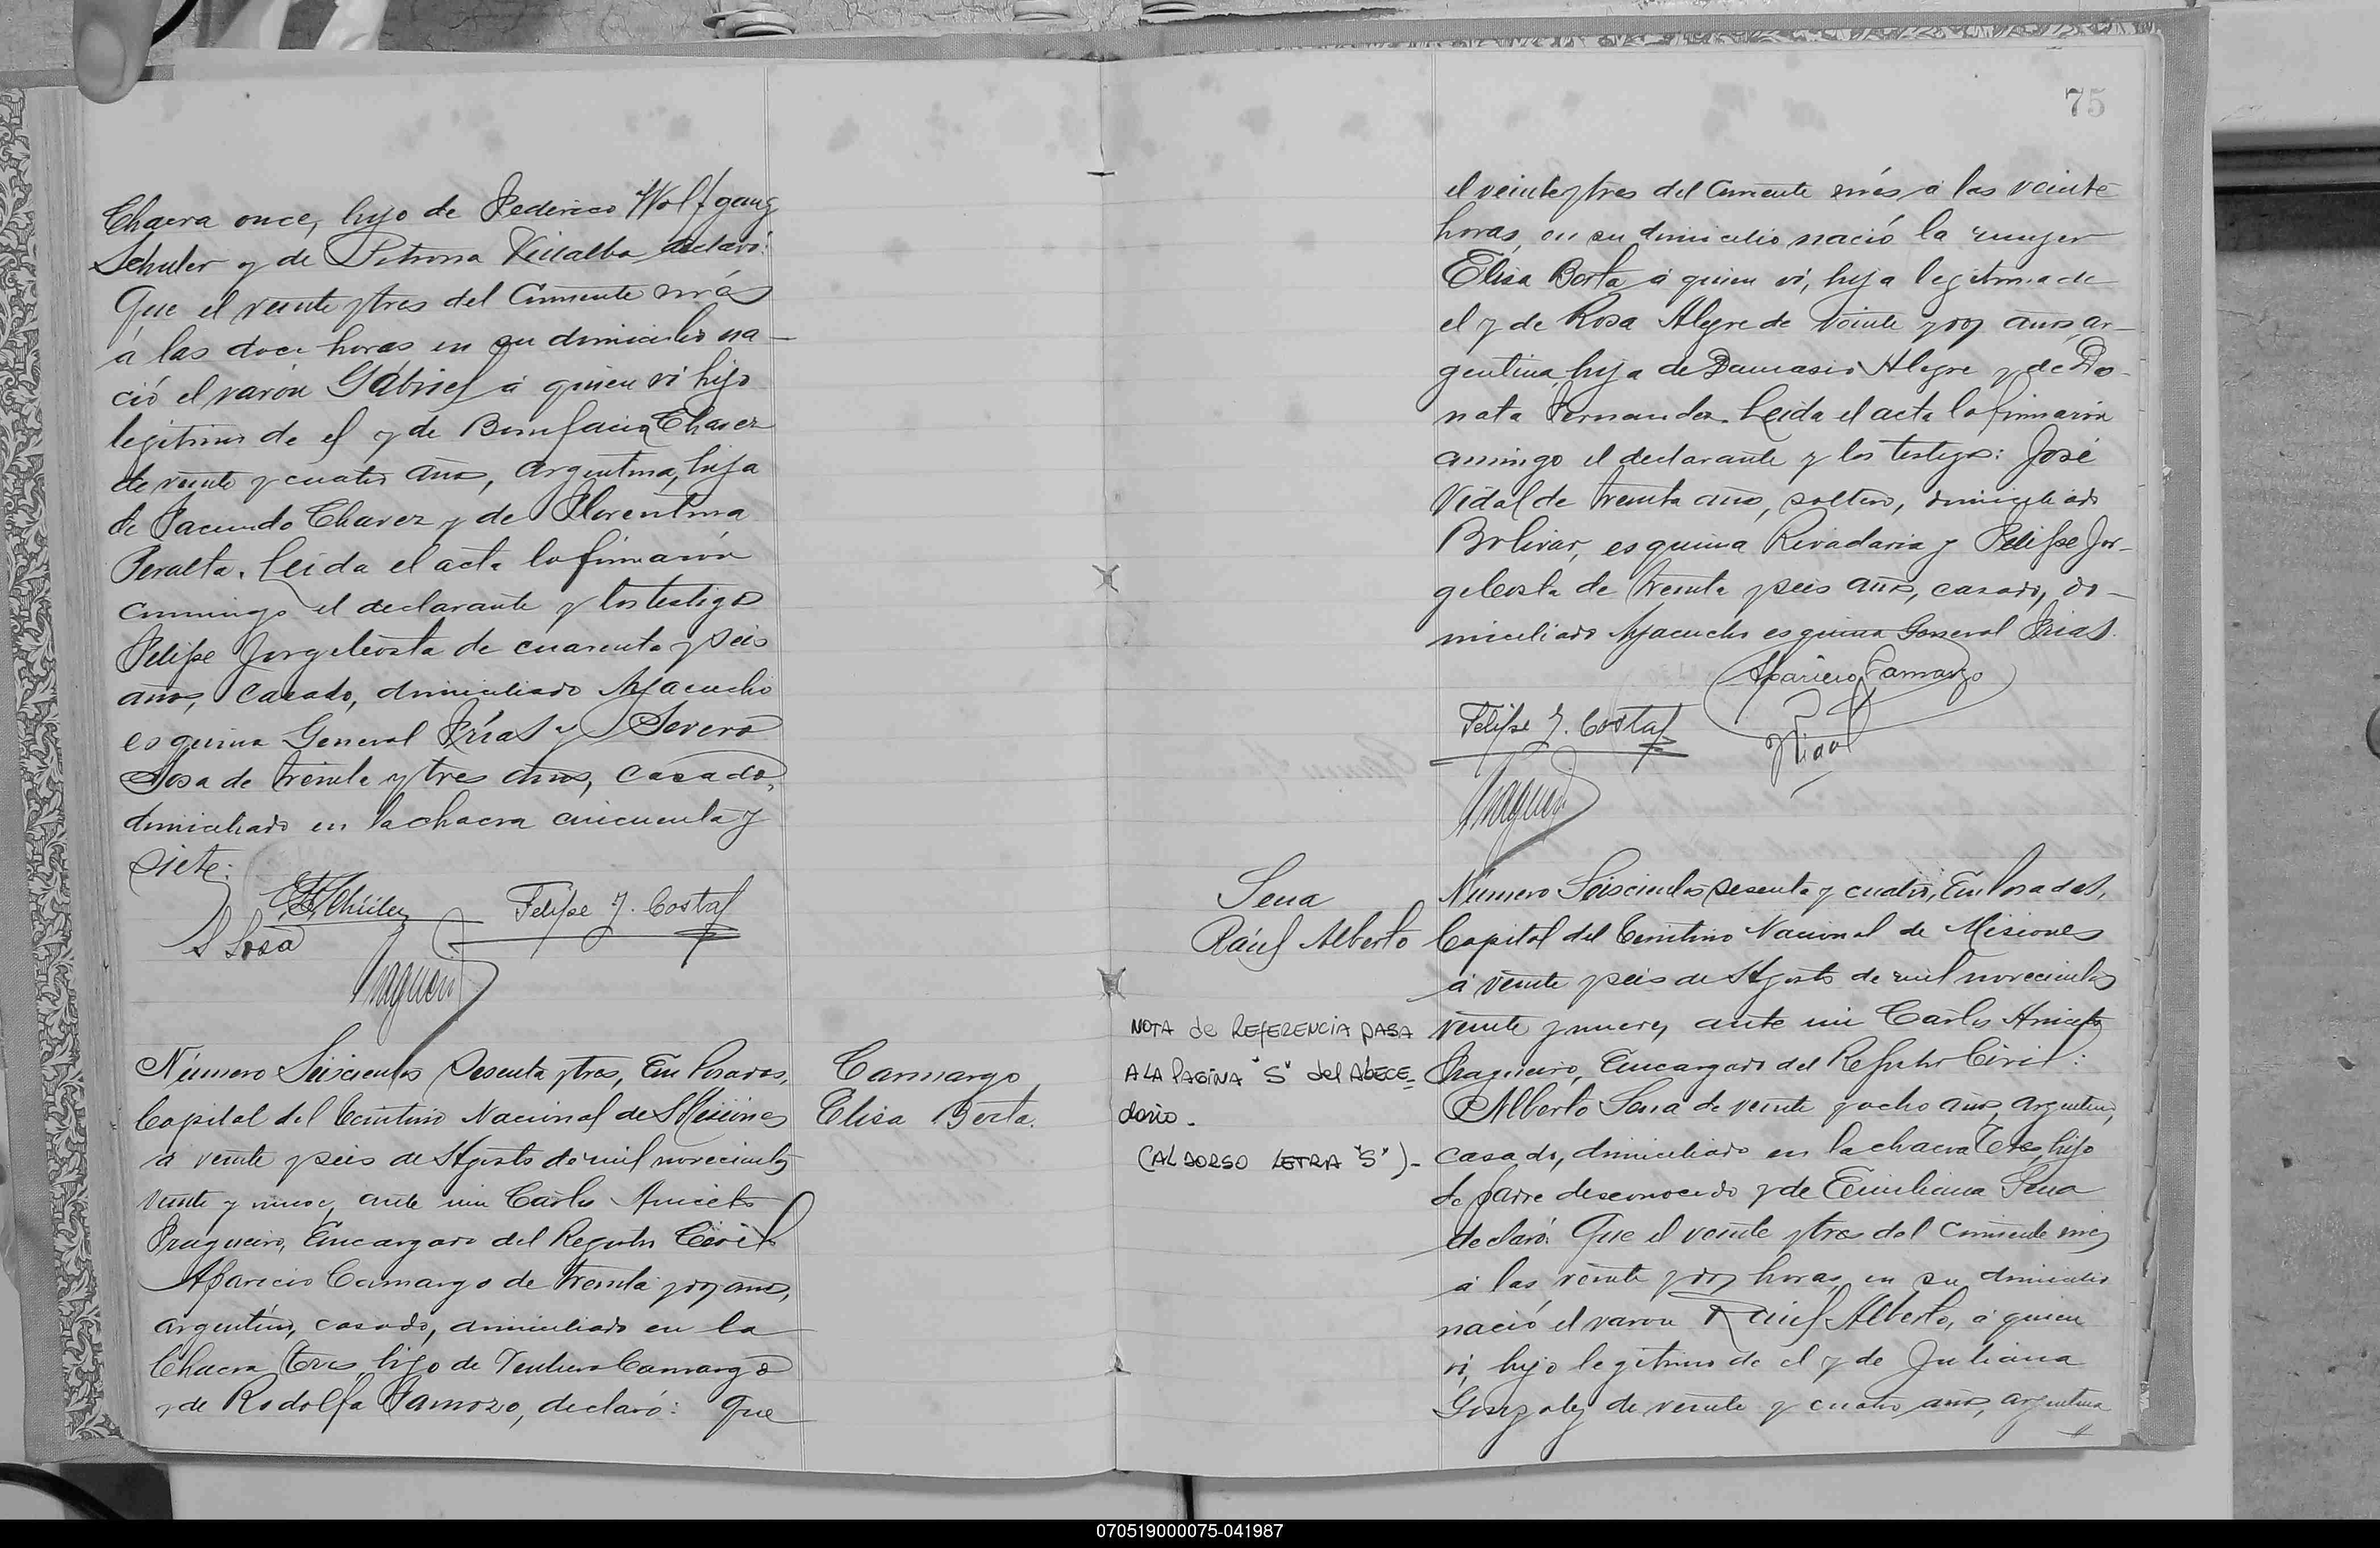 Chacra once, hijo de Federico Wolfgang
Schuler y de Petrona Villalba declaró:
Que el veinte y tres del corriente més
á las doce horas en su domicilio na-
ció el varón Gabriel á quien ví hijo
legitimo de el y de Bonifacia Chavez
de veinte y cuatro años, argentina, hija
de Facundo Chavez y de Florentina
Peralta. Leida el acta la firmarón
conmigo el declarante y los testigos
Felipe Jorge Costa de cuarenta y seis
años, casado, domiciliado Ayacucho
esquina General Frías y Severo
Sosa de treinta y tres años, casado,
domiciliado en la chacra cincuenta y
siete:
Schüler
Felipe J. Costa
S Sosa
Número Seiscientos sesenta y tres, En Posadas,
Capital del Territorio Nacional de Misiones
á veinte y seis de Agosto de mil novecientos
veinte y nueve, ante mi Carlos Aniceto
Fragueiro, Encargado del Registro Civil
Aparicio Camargo de treinta y dos años,
argentino, casado, domiciliado en la
Chacra tres, hijo de Camargo
y de Rodolfa, declaró: Que
Camargo
Elisa Berta.
75
el veinte y tres del corriente més á las veinte
horas, en su domicilio nació la mujer
Elisa Berta á quien ví, hija legitima de
el y de Rosa Alegre de veinte y dos años, ar-
gentina, hija de Damasio Alegre y de Do-
nata Fernandez. Leida el acta la firmarón
conmigo el declarante y los testigos: José
Vidal de treinta años, soltero, domiciliado
Bolivar, esquina Rivadavia y Felipe Jor-
ge Costa de treinta y seis años, casado, do-
miciliado Ayacucho esquina General Frías.
Aparicio Camargo
Felipe J. Costa
Vidal
Sena
Raúl Alberto
NOTA de REFERENCIA PASA
A LA PAGINA "S" del ABECE-
dario.
(AL DORSO LETRA "S")-
Número Seiscientos sesenta y cuatro, En Posadas,
Capital del Territorio Nacional de Misiones
á veinte y seis de Agosto de mil novecientos
veinte y nueve, ante mi Carlos Aniceto
Fragueiro, Encargado del Registro Civil:
Alberto Sena de veinte y ocho años, argentino,
casado, domiciliado en la chacra tres, hijo
de padre desconocido y de Emiliana Sena
declaró: Que el veinte y tres del corriente més
á las veinte y dos horas, en su domicilio
nació el varon Raúl Alberto, á quien
ví, hijo legitimo de el y de Juliana
Gonzalez de veinte y cuatro años, argentina
070519000075-041987